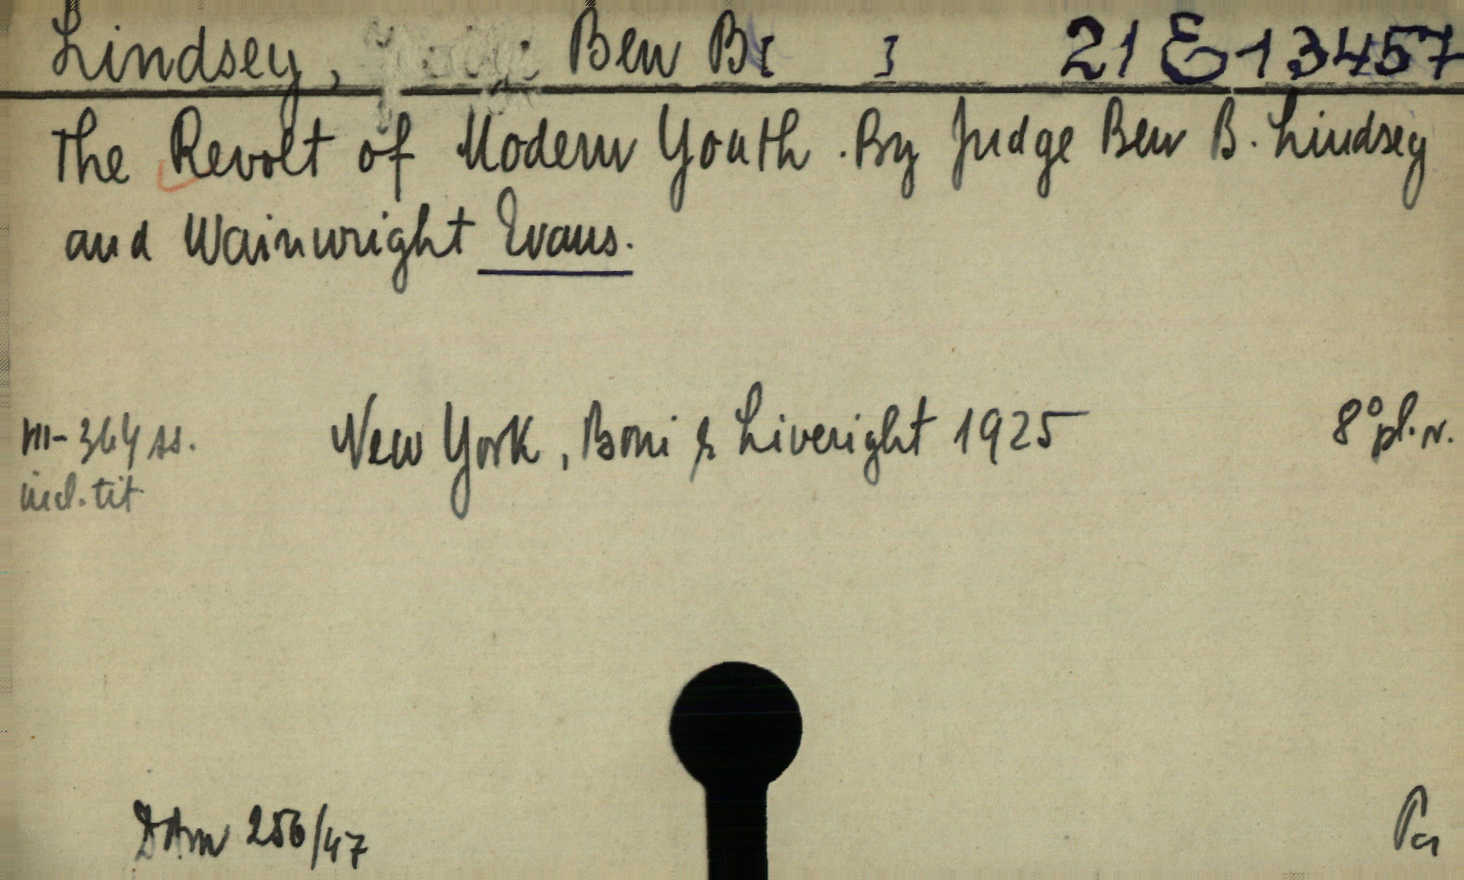 Lindsey, Ben B[ ] 21 E 13457
The Revolt of Modern Youth. By Judge Ben B. Lindsey
and Wainwright Evans.
New York, Boni & Liveright 1925 8° pl. v.
III-364 ss.
incl. tit
DAm 256/47